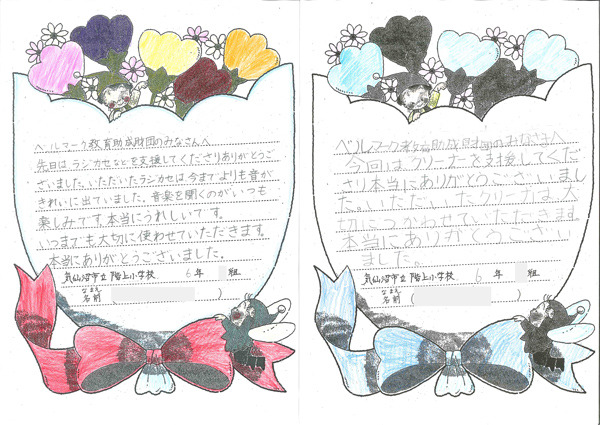 ベルマーク教育助成財団のみなさんへ
先日は、ラジカセなどを支援してくださりありがとうご
ざいました。いただいたラジカセは、今までよりも音が
きれいに出ていました。音楽を聞くのがいつも
楽しみです。本当にうれしいです。
いつまでも大切に使わせていただきます。
本当にありがとうございました。
気仙沼市立 階上小学校 6年 組
なまえ
名前( )
ベルマーク教育助成財団のみなさまへ
今回はクリーナーを支援してくだ
さり本当にありがとうございまし
た。いただいたクリーナーは大
切につかわせていただきます。
本当にありがとうござい
ました。
気仙沼市立 階上小学校 6年 組
なまえ
名前( )